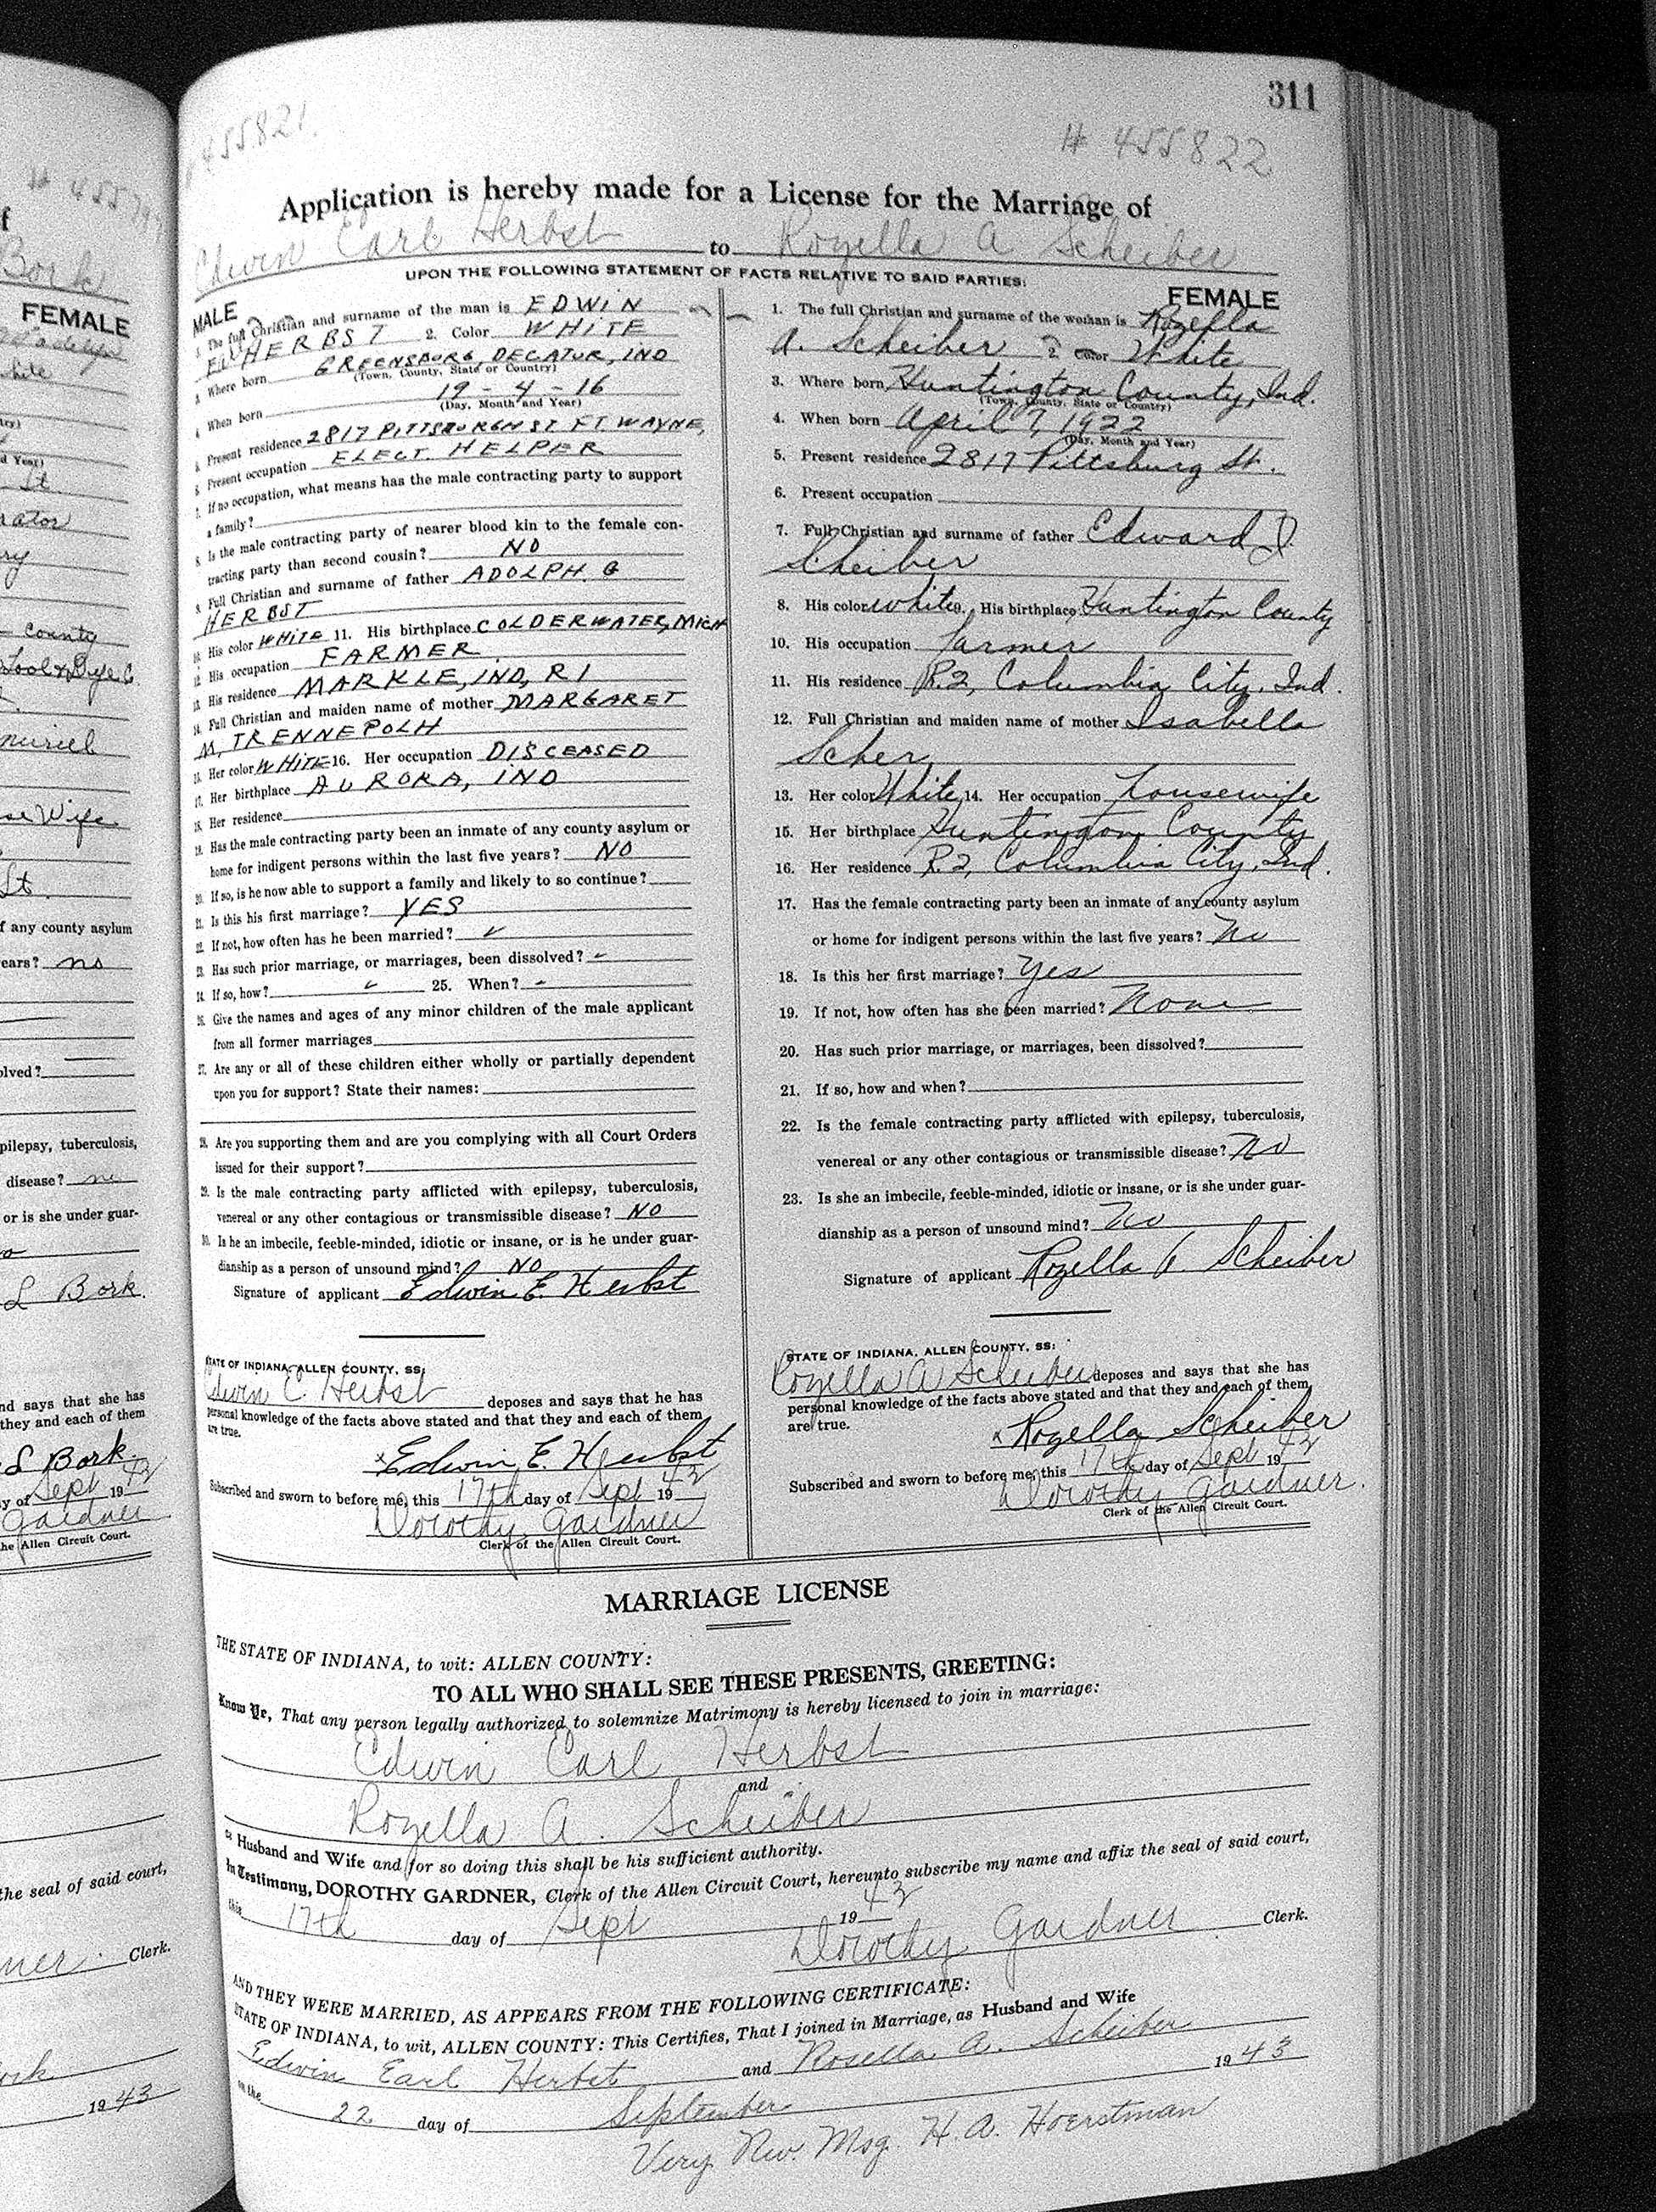 311
455821
# 455822
Application is hereby made for a License for the Marriage of
Edwin Earl Herbst to Rozella A Scheiber
UPON THE FOLLOWING STATEMENT OF FACTS RELATIVE TO SAID PARTIES:
MALE
1. The full Christian and surname of the man is EDWIN
HERBST 2. Color WHITE
3. Where born GREENSBURG, DECATUR, IND
(Town, County, State or Country)
4. When born 19-4-16
(Day, Month and Year)
5. Present residence 2817 PITTSBURGH ST FT. WAYNE,
6. Present occupation ELECT. HELPER
7. If no occupation, what means has the male contracting party to support
a family?
8. Is the male contracting party of nearer blood kin to the female con-
tracting party than second cousin? NO
9. Full Christian and surname of father ADOLPH. G
HERBST
10. His color WHITE 11. His birthplace COLDERWATER, MICH
12. His occupation FARMER
13. His residence MARKLE, IND, R1
14. Full Christian and maiden name of mother MARGARET
M, TRENNEPOLH
15. Her color WHITE 16. Her occupation DISCEASED
17. Her birthplace AURORA, IND
18. Her residence
19. Has the male contracting party been an inmate of any county asylum or
home for indigent persons within the last five years? NO
20. If so, is he now able to support a family and likely to so continue?
21. Is this his first marriage? YES
22. If not, how often has he been married?
23. Has such prior marriage, or marriages, been dissolved?
24. If so, how? 25. When?
26. Give the names and ages of any minor children of the male applicant
from all former marriages
27. Are any or all of these children either wholly or partially dependent
upon you for support? State their names:
28. Are you supporting them and are you complying with all Court Orders
issued for their support?
29. Is the male contracting party afflicted with epilepsy, tuberculosis,
venereal or any other contagious or transmissible disease? NO
30. Is he an imbecile, feeble-minded, idiotic or insane, or is he under guar-
dianship as a person of unsound mind? NO
Signature of applicant Edwin E. Herbst
STATE OF INDIANA, ALLEN COUNTY, SS:
Edwin E. Herbst deposes and says that he has
personal knowledge of the facts above stated and that they and each of them
are true.
x Edwin E. Herbst
Subscribed and sworn to before me, this 17th day of Sept 1943
Dorothy Gardner
Clerk of the Allen Circuit Court.
FEMALE
1. The full Christian and surname of the woman is Rozella
A. Scheiber 2. Color White
3. Where born Huntington County, Ind.
(Town, County, State or Country)
4. When born April 7, 1922
(Day, Month and Year)
5. Present residence 2817 Pittsburg St.
6. Present occupation
7. Full Christian and surname of father Edward J.
Scheiber
8. His color white 9. His birthplace Huntington County
10. His occupation Farmer
11. His residence R.2, Columbia City, Ind.
12. Full Christian and maiden name of mother Isabella
Scher
13. Her color White 14. Her occupation housewife
15. Her birthplace Huntington County
16. Her residence R.2, Columbia City, Ind.
17. Has the female contracting party been an inmate of any county asylum
or home for indigent persons within the last five years? No
18. Is this her first marriage? Yes
19. If not, how often has she been married? None
20. Has such prior marriage, or marriages, been dissolved?
21. If so, how and when?
22. Is the female contracting party afflicted with epilepsy, tuberculosis,
venereal or any other contagious or transmissible disease? No
23. Is she an imbecile, feeble-minded, idiotic or insane, or is she under guar-
dianship as a person of unsound mind? No
Signature of applicant Rozella A. Scheiber
STATE OF INDIANA, ALLEN COUNTY, SS:
Rozella A Scheiber deposes and says that she has
personal knowledge of the facts above stated and that they and each of them
are true.
x Rozella Scheiber
Subscribed and sworn to before me, this 17th day of Sept 1943
Dorothy Gardner
Clerk of the Allen Circuit Court.
MARRIAGE LICENSE
THE STATE OF INDIANA, to wit: ALLEN COUNTY:
TO ALL WHO SHALL SEE THESE PRESENTS, GREETING:
Know Ye, That any person legally authorized to solemnize Matrimony is hereby licensed to join in marriage:
Edwin Earl Herbst
and
Rozella A. Scheiber
as Husband and Wife and for so doing this shall be his sufficient authority.
In Testimony, DOROTHY GARDNER, Clerk of the Allen Circuit Court, hereunto subscribe my name and affix the seal of said court,
this 17th day of Sept 1943
Dorothy Gardner Clerk.
AND THEY WERE MARRIED, AS APPEARS FROM THE FOLLOWING CERTIFICATE:
STATE OF INDIANA, to wit, ALLEN COUNTY: This Certifies, That I joined in Marriage, as Husband and Wife
Edwin Earl Herbst and Rosella A. Scheiber
on the 22 day of September 1943
Very Rev. Msg. H. A. Hoerstman